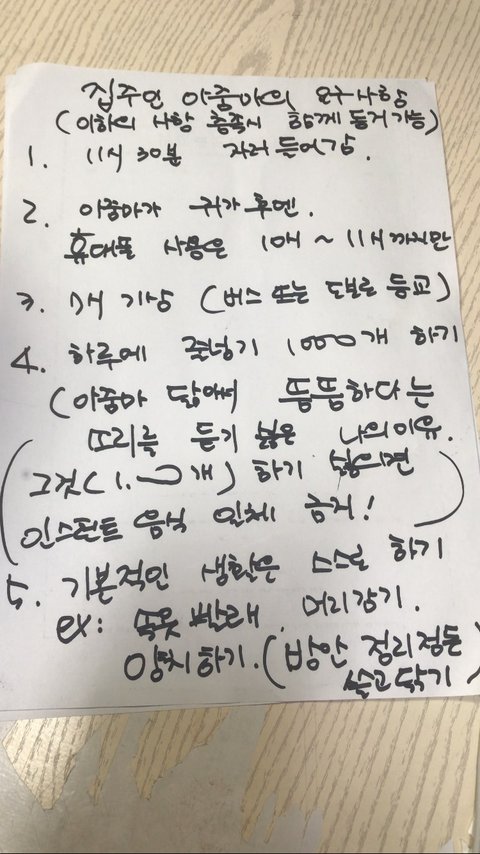 집주인 아줌마의 요구사항
(이하의 사항 충족시 함께 동거 가능)
1. 11시 30분 자러 들어감.
2. 아줌마가 귀가 후엔.
휴대폰 사용은 10시 ~ 11시까지만
3. 7시 기상 (버스 또는 도보로 등교)
4. 하루에 줄넘기 1000개 하기
(아줌마 닮아서 뚱뚱하다는
소리를 듣기 싫은 나의 이유.
그것(1000개) 하기 싫으면
인스턴트 음식 일체 금지!)
5. 기본적인 생활은 스스로 하기
ex: 속옷 빨래. 머리감기.
양치하기. (방안 정리정돈
쓸고 닦기)